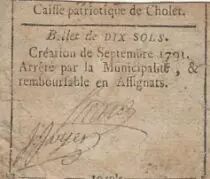 Caisse patriotique de Cholet.
Billet de DIX SOLS.
Création de Septembre 1791.
Arrêté par la Municipalité, &
remboursable en Assignats.